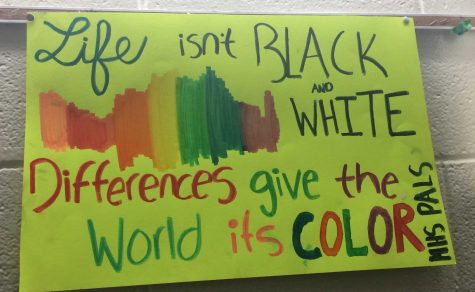 Life isn't BLACK
AND
WHITE
Differences give the
World its COLOR
MHS PALS